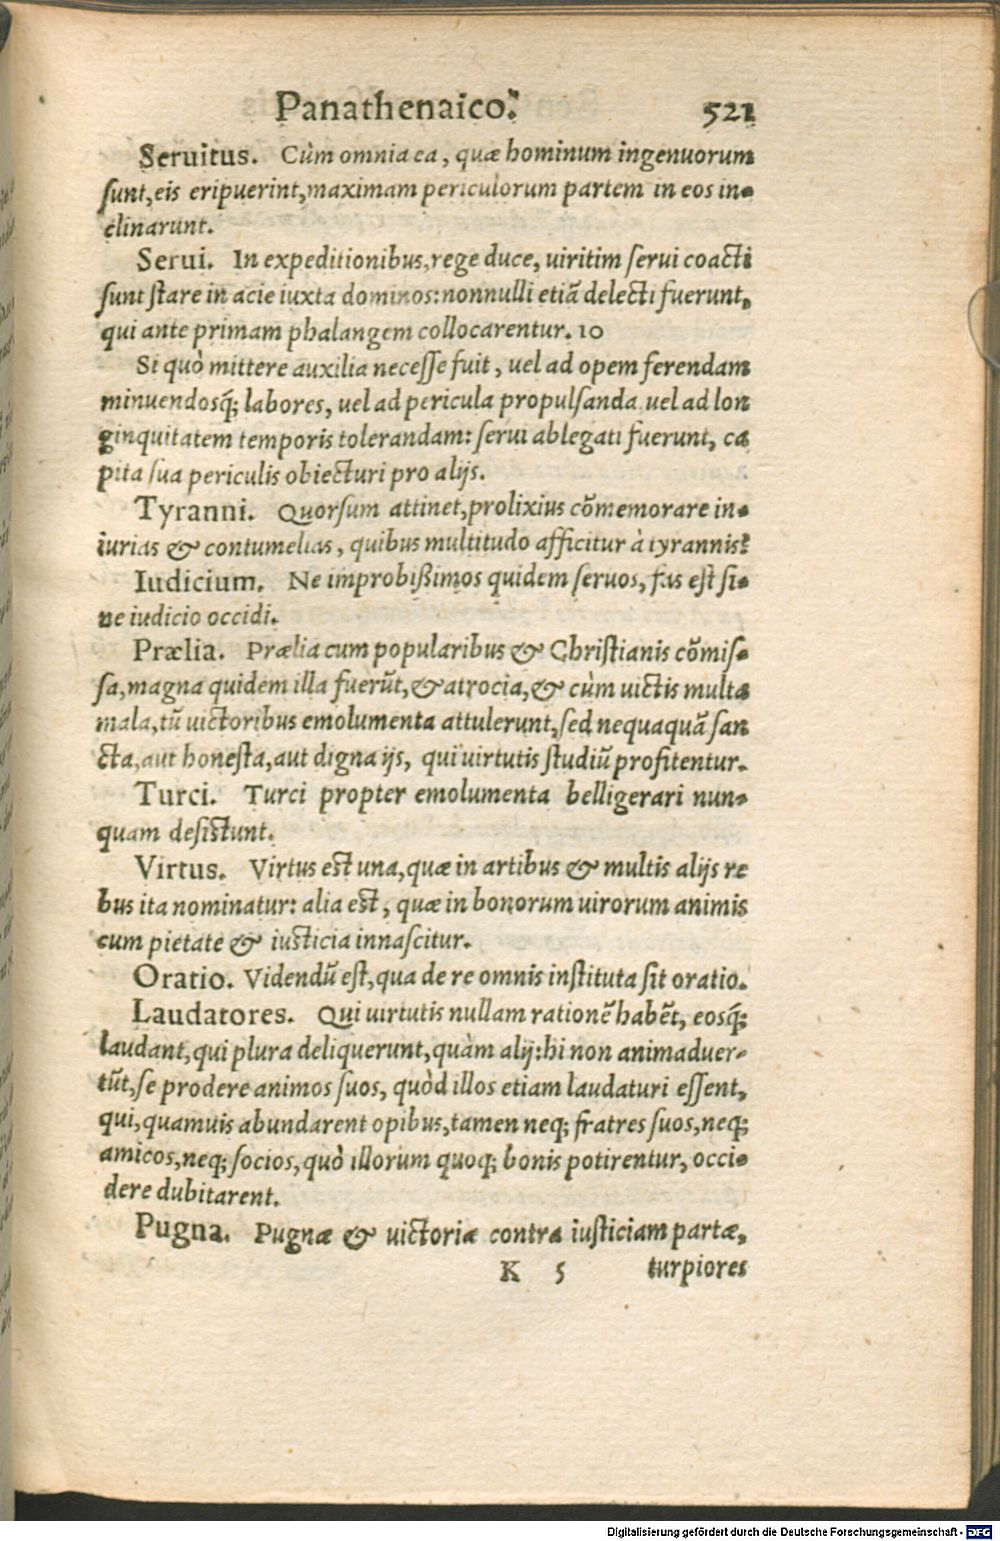 Panathenaico. 521
Seruitus. Cùm omnia ea, quæ hominum ingenuorum
sunt, eis eripuerint, maximam periculorum partem in eos in-
clinarunt.
Serui. In expeditionibus, rege duce, uiritim serui coacti
sunt stare in acie iuxta dominos: nonnulli etiã delecti fuerunt,
qui ante primam phalangem collocarentur. 10
Si quò mittere auxilia necesse fuit, uel ad opem ferendam
minuendosq́; labores, uel ad pericula propulsanda uel ad lon
ginquitatem temporis tolerandam: serui ablegati fuerunt, ca
pita sua periculis obiecturi pro alijs.
Tyranni. Quorsum attinet, prolixius cõmemorare in-
iurias & contumelias, quibus multitudo afficitur à tyrannis?
Iudicium. Ne improbißimos quidem seruos, fas est si-
ne iudicio occidi.
Prælia. Prælia cum popularibus & Christianis cõmis-
sa, magna quidem illa fuerũt, & atrocia, & cùm uictis multa
mala, tũ uictoribus emolumenta attulerunt, sed nequaquã san
cta, aut honesta, aut digna ijs, qui uirtutis studiũ profitentur.
Turci. Turci propter emolumenta belligerari nun-
quam desistunt.
Virtus. Virtus est una, quæ in artibus & multis alijs re
bus ita nominatur: alia est, quæ in bonorum uirorum animis
cum pietate & iusticia innascitur.
Oratio. Videndũ est, qua de re omnis instituta sit oratio.
Laudatores. Qui uirtutis nullam rationẽ habẽt, eosq́;
laudant, qui plura deliquerunt, quàm alij: hi non animaduer-
tũt, se prodere animos suos, quòd illos etiam laudaturi essent,
qui, quamuis abundarent opibus, tamen neq; fratres suos, neq;
amicos, neq; socios, quò illorum quoq; bonis potirentur, occi-
dere dubitarent.
Pugna. Pugnæ & uictoriæ contra iusticiam partæ,
K 5 turpiores
Digitalisierung gefördert durch die Deutsche Forschungsgemeinschaft - DFG